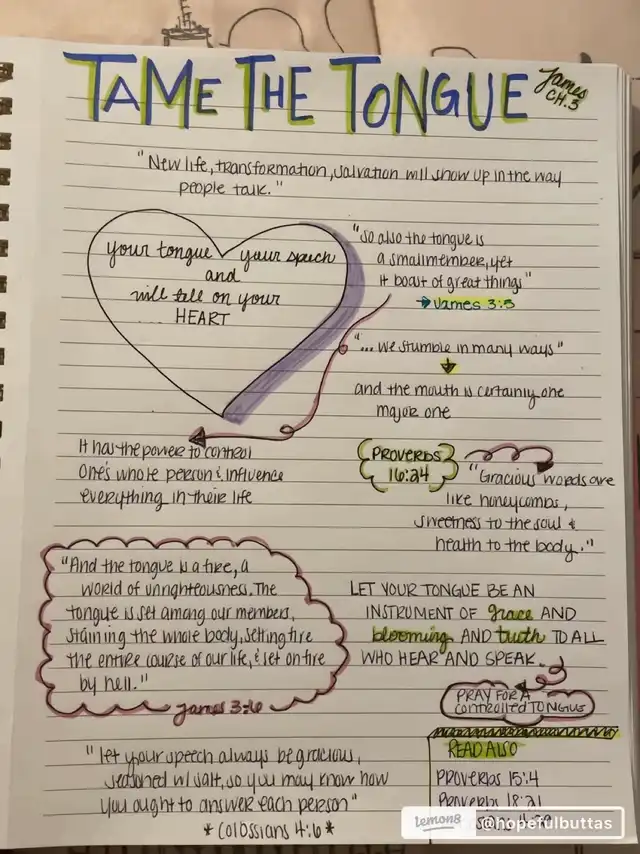 TAME THE TONGUE
James
CH.3
"New life, transformation, salvation will show up in the way
people talk."
your tongue your speech
and
will tell on your
HEART
"so also the tongue is
a small member, yet
it boast of great things"
James 3:5
"... we stumble in many ways"
and the mouth is certainly one
major one
It has the power to control
One's whole person & influence
everything in their life
PROVERBS
16:24
"Gracious words are
like honeycombs,
sweetness to the soul &
health to the body."
"And the tongue is a fire, a
world of unrighteousness. The
tongue is set among our members,
staining the whole body, setting fire
the entire course of our life, & set on fire
by hell."
James 3:6
LET YOUR TONGUE BE AN
INSTRUMENT OF grace AND
blooming AND truth TO ALL
WHO HEAR AND SPEAK.
PRAY FOR A
controlled TONGUE
"let your speech always be gracious,
seasoned w/ salt, so you may know how
you ought to answer each person"
*Colossians 4:6*
READ ALSO
Proverbs 15:4
Proverbs 18:21
lemon8 @hopefulbuttas